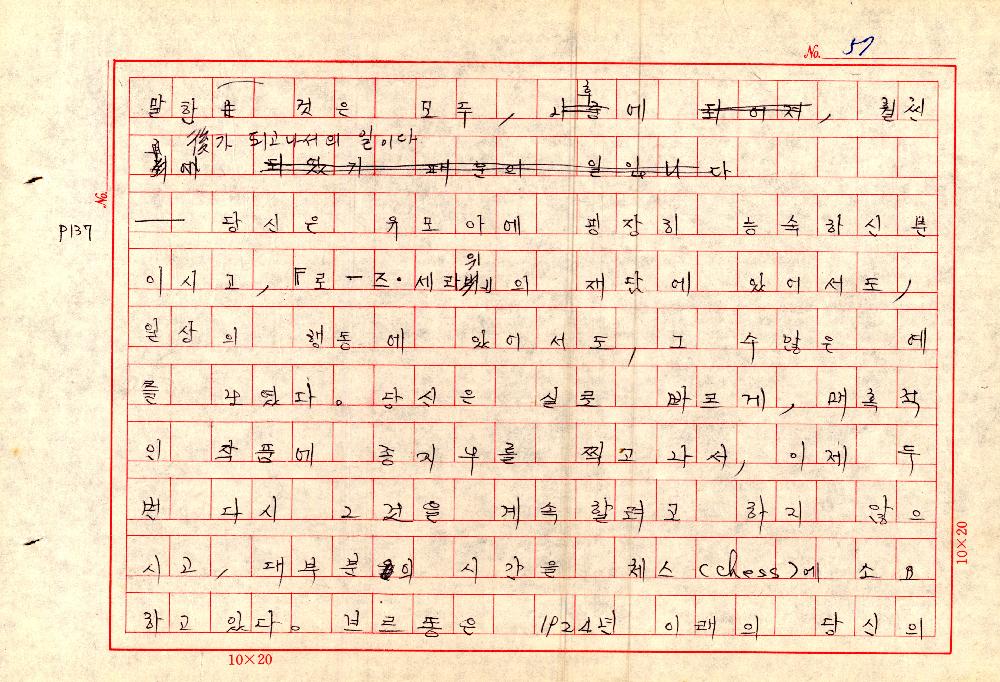 No. 57
말한 것은 모두, 후에, 훨씬
後가 되고나서의 일이다.
되었기 때문의 일입니다
No.
P137
— 당신은 유모아에 굉장히 능숙하신 분
이시고, 「로-즈·세라위의 재단에 있어서도,
일상의 행동에 있어서도, 그 수많은 예
를 낳았다. 당신은 실로 빠르게, 매혹적
인 작품에 종지부를 찍고 나서, 이제 두
번 다시 그것을 계속 할려고 하지 않으
시고, 대부분의 시간을 체스(chess)에 소비
하고 있다. 브르통은 1924년 이래의 당신의
10×20
10×20